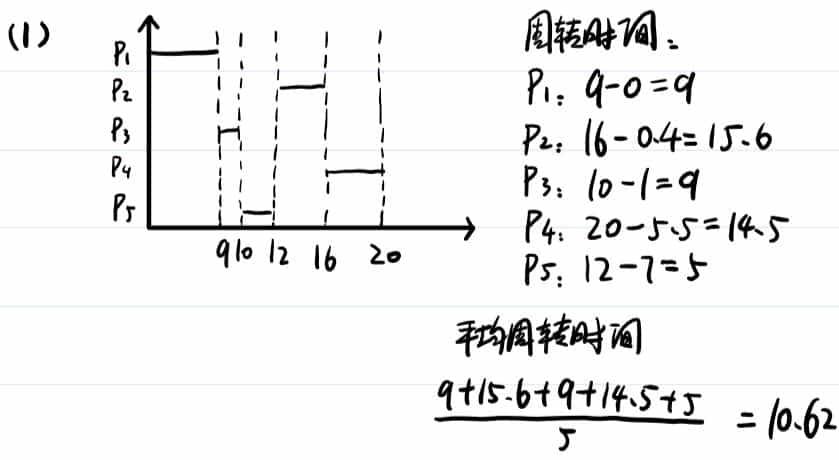 (1)
P1
P2
P3
P4
P5
9 10 12 16 20
周转时间:
P1: 9-0=9
P2: 16-0.4=15.6
P3: 10-1=9
P4: 20-5.5=14.5
P5: 12-7=5
平均周转时间
9+15.6+9+14.5+5
5
=10.62